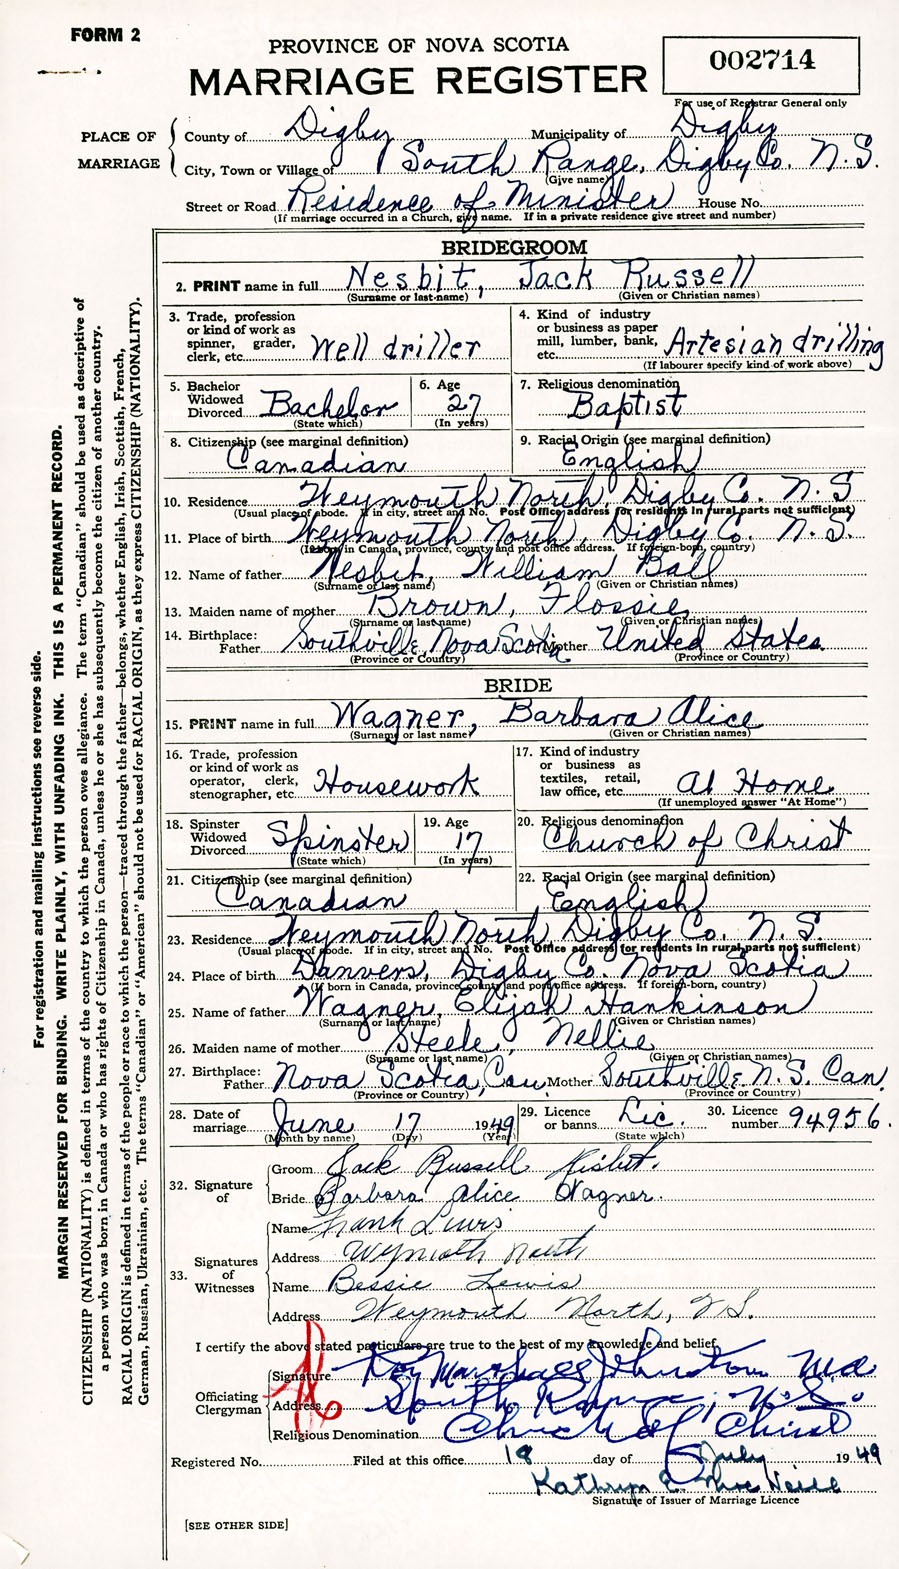 FORM 2
PROVINCE OF NOVA SCOTIA
MARRIAGE REGISTER
002714
For use of Registrar General only
PLACE OF MARRIAGE
County of Digby Municipality of Digby
City, Town or Village of South Range, Digby Co. N.S.
(Give name)
Street or Road Residence of Minister House No.
(If marriage occurred in a Church, give name. If in a private residence give street and number)
BRIDEGROOM
2. PRINT name in full Nesbit, Jack Russell
(Surname or last name) (Given or Christian names)
3. Trade, profession or kind of work as spinner, grader, clerk, etc. Well driller
4. Kind of industry or business as paper mill, lumber, bank, etc. Artesian drilling
(If labourer specify kind of work above)
5. Bachelor Widowed Divorced Bachelor
(State which)
6. Age 27
(In years)
7. Religious denomination
Baptist
8. Citizenship (see marginal definition)
Canadian
9. Racial Origin (see marginal definition)
English
10. Residence Weymouth North, Digby Co. N.S
(Usual place of abode. If in city, street and No. Post Office address for residents in rural parts not sufficient)
11. Place of birth Weymouth North, Digby Co. N.S.
(If born in Canada, province, county and post office address. If foreign-born, country)
12. Name of father Nesbit, William Ball
(Surname or last name) (Given or Christian names)
13. Maiden name of mother Brown, Flossie
(Surname or last name) (Given or Christian names)
14. Birthplace: Father Southville, Nova Scotia Mother United States
(Province or Country) (Province or Country)
BRIDE
15. PRINT name in full Wagner, Barbara Alice
(Surname or last name) (Given or Christian names)
16. Trade, profession or kind of work as operator, clerk, stenographer, etc. Housework
17. Kind of industry or business as textiles, retail, law office, etc. At Home
(If unemployed answer "At Home")
18. Spinster Widowed Divorced Spinster
(State which)
19. Age 17
(In years)
20. Religious denomination
Church of Christ
21. Citizenship (see marginal definition)
Canadian
22. Racial Origin (see marginal definition)
English
23. Residence Weymouth North Digby Co. N.S.
(Usual place of abode. If in city, street and No. Post Office address for residents in rural parts not sufficient)
24. Place of birth Danvers, Digby Co. Nova Scotia
(If born in Canada, province, county and post office address. If foreign-born, country)
25. Name of father Wagner, Elijah Hankinson
(Surname or last name) (Given or Christian names)
26. Maiden name of mother Steele, Nellie
(Surname or last name) (Given or Christian names)
27. Birthplace: Father Nova Scotia, Can Mother Southville N.S. Can.
(Province or Country) (Province or Country)
28. Date of marriage June 17 1949
(Month by name) (Day) (Year)
29. Licence or banns Lic.
(State which)
30. Licence number 94956.
32. Signature of
Groom Jack Russell Nisbet.
Bride Barbara Alice Wagner.
33. Signatures of Witnesses
Name Frank Lewis
Address Wymouth North
Name Bessie Lewis
Address Weymouth North, N.S.
I certify the above stated particulars are true to the best of my knowledge and belief.
Officiating Clergyman
Signature Roy Marshall Johnston
Address South Range, N.S.
Religious Denomination Church of Christ
Registered No. Filed at this office 18 day of July 1949
Kathryn E. MacNeill
Signature of Issuer of Marriage Licence
[SEE OTHER SIDE]
For registration and mailing instructions see reverse side.
MARGIN RESERVED FOR BINDING. WRITE PLAINLY, WITH UNFADING INK. THIS IS A PERMANENT RECORD.
CITIZENSHIP (NATIONALITY) is defined in terms of the country to which the person owes allegiance. The term "Canadian" should be used as descriptive of
a person who was born in Canada or who has rights of Citizenship in Canada, unless he or she has subsequently become the citizen of another country.
RACIAL ORIGIN is defined in terms of the people or race to which the person—traced through the father—belongs, whether English, Irish, Scottish, French,
German, Russian, Ukrainian, etc. The terms "Canadian" or "American" should not be used for RACIAL ORIGIN, as they express CITIZENSHIP (NATIONALITY).